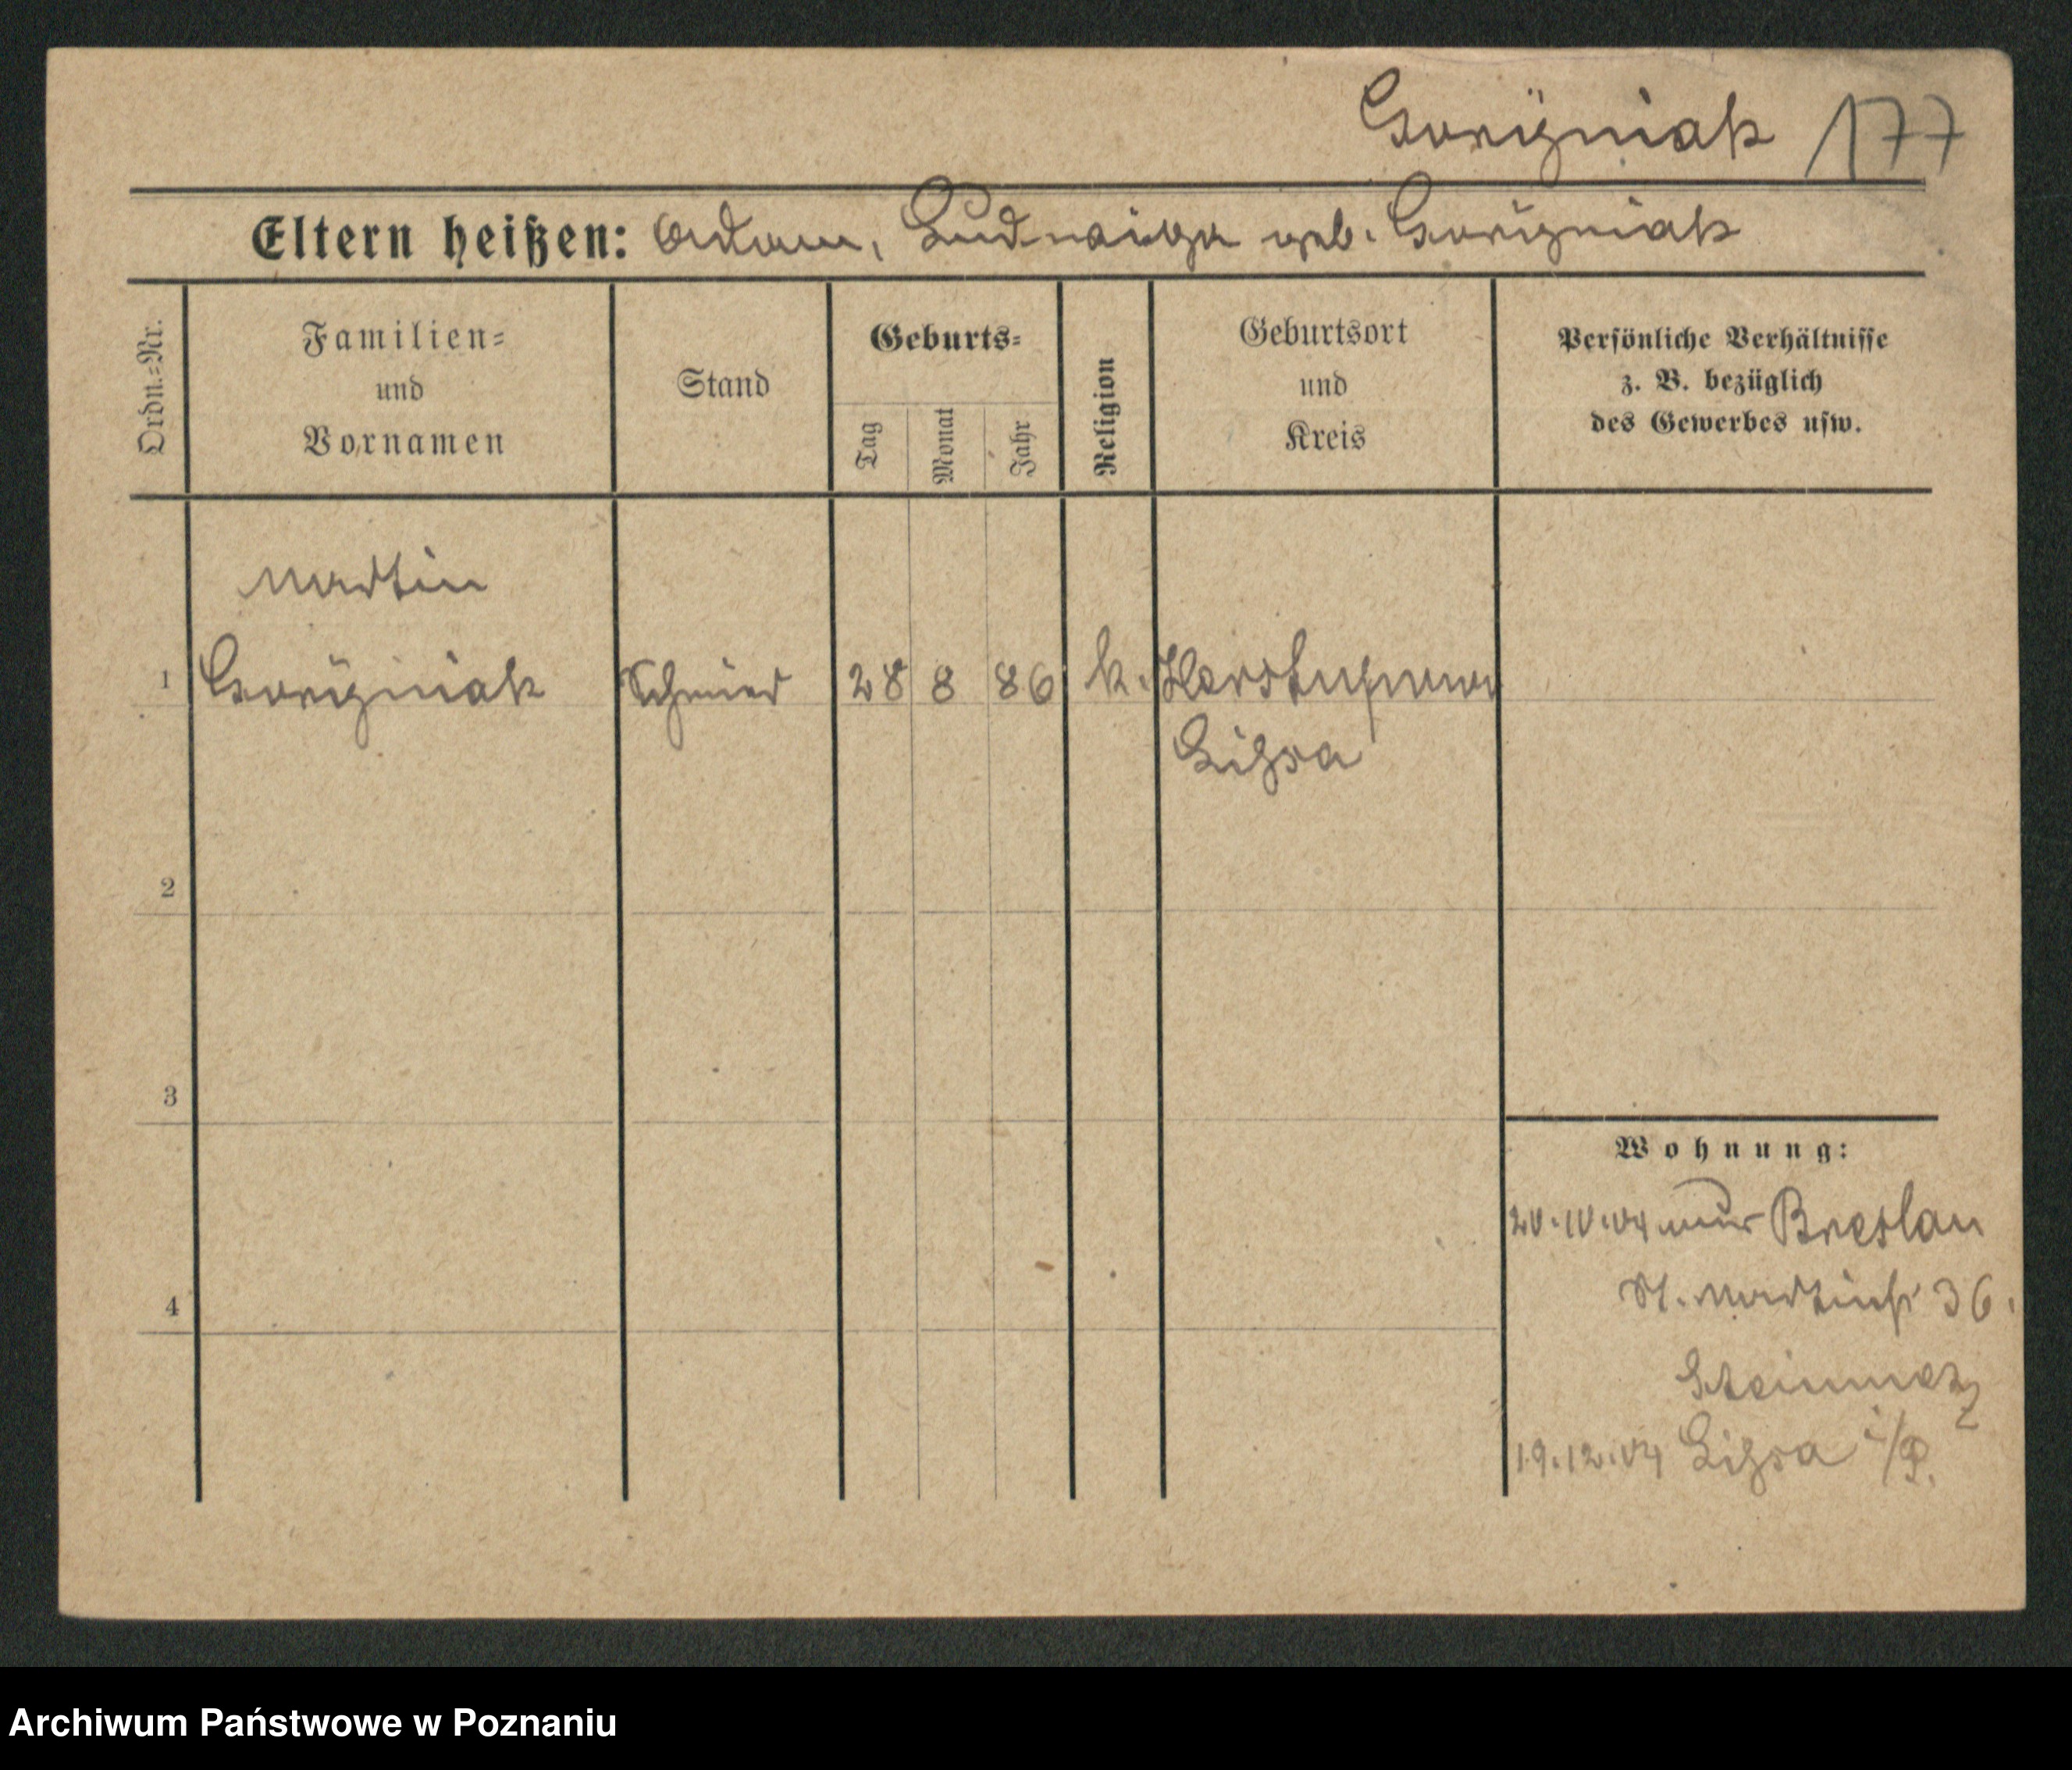 Goryzniak 177
Eltern heißen: Adam, Ludwiga geb. Goryzniak
Ordn.=Nr.
Familien=
und
Vornamen
Stand
Geburts=
Tag
Monat
Jahr
Religion
Geburtsort
und
Kreis
Persönliche Verhältnisse
z. B. bezüglich
des Gewerbes usw.
Martin
1 Goryzniak 28 8 86 k.
Lissa
2
3
4
Wohnung:
20.10.04 Breslau
St. Martinstr 36.
Steinmetz
19.12.04 Lissa i/P.
Archiwum Państwowe w Poznaniu